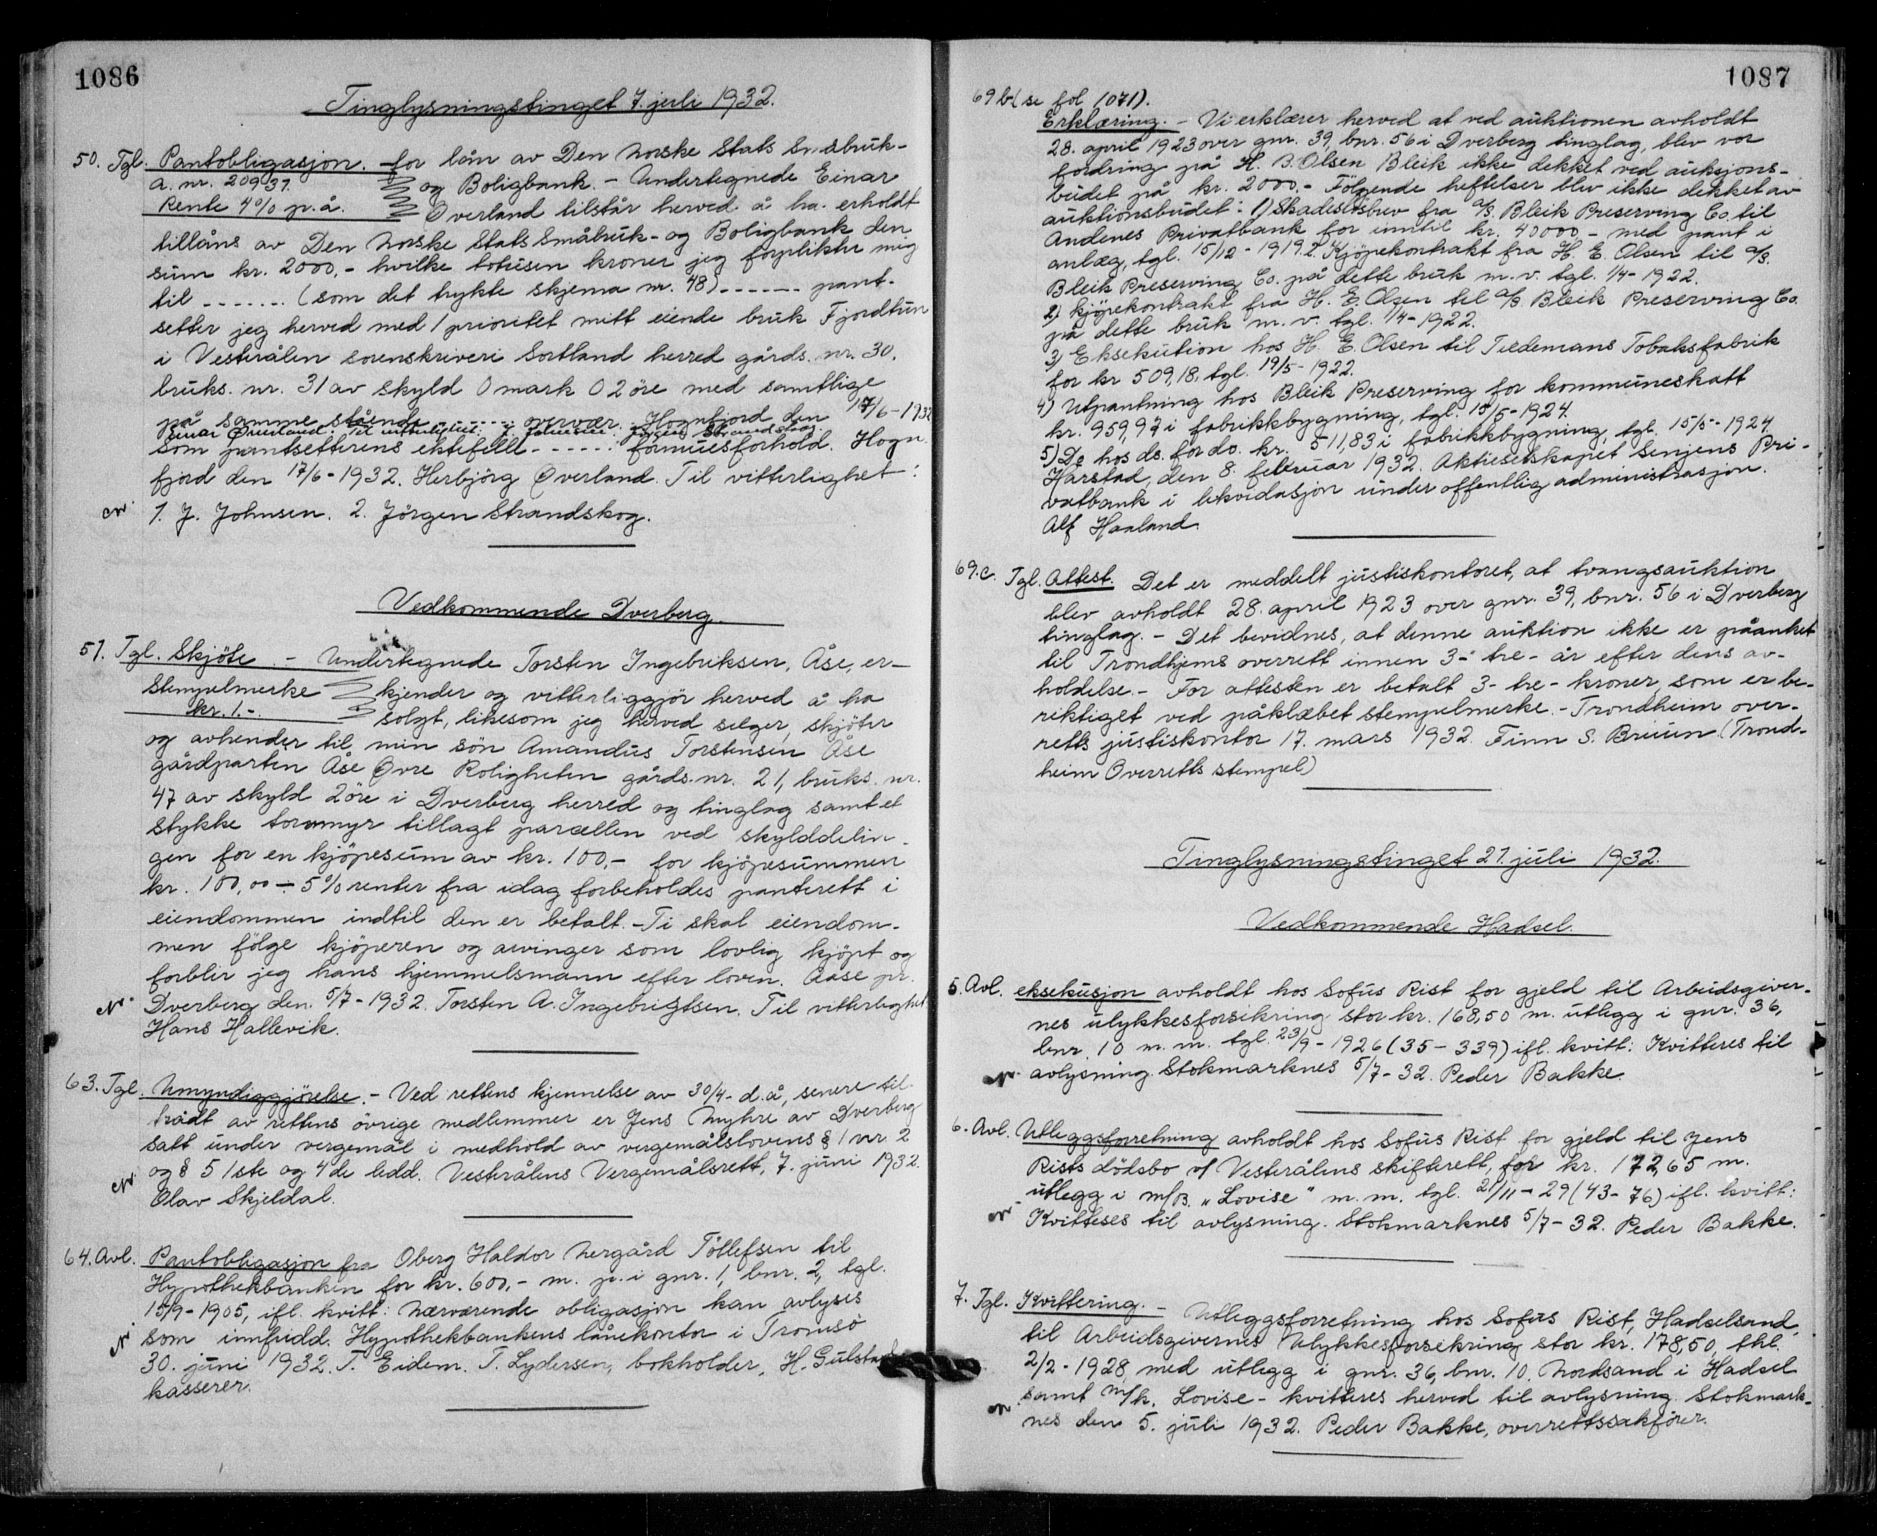 1086
Tinglysningstinget 7. juli 1932.
50. Tgl. Pantobligasjon. - for lån av Den Norske Stats Småbruk-
a. nr. 20937. og Boligbank. - Undertegnede Einar
Rente 4% p. å. Överland tilstår herved å ha erholdt
tillåns av Den Norske Stats Småbruk- og Boligbank den
sum kr. 2000,- hvilke totusen kroner jeg forplikter mig
til ....... (som det trykte skjema nr. 48) ------- pant-
setter jeg herved med 1 prioritet mitt eiende bruk Fjordtun
i Vesterålen sorenskriveri Sortland herred gårds. nr. 30.
bruks. nr. 31 av skyld 0 mark 02 öre med samtlige
på samme stående ------ overvær. Hognfjord den 17/6-1932
Einar Överland. Til vitterlighet: J. Johnsen. Jörgen Strandskog.
Som pantsetterens ektefelle - - - - - formuesforhold. Hogn-
fjord den 17/6-1932. Herbjörg Överland. Til vitterlighet:
1. J. Johnsen. 2. Jörgen Strandskog.
Vedkommende Dverberg.
51. Tgl. Skjöte. - Undertegnede Torsten Ingebriksen, Åse, er-
Stempelmerke kjender og vitterliggjör herved å ha
kr. 1.- solgt, likesom jeg herved selger, skjöter
og avhender til min sön Amandus Torstensen Åse
gårdparten Åse Övre Roligheten gårds. nr. 21, bruks. nr.
47 av skyld 2 öre i Dverberg herred og tinglag samt et
stykke torvmyr tillagt parcellen ved skylddelin-
gen for en kjöpesum av kr. 100,- for kjöpesummen
kr. 100,00 - 5% renter fra idag forbeholdes panterett i
eiendommen indtil den er betalt. - Ti skal eiendom-
men fölge kjöperen og arvinger som lovlig kjöpt og
forblir jeg hans hjemmelsmann efter loven. Aase pr.
Dverberg den 5/7-1932. Torsten A. Ingebrigtsen. Til vitterlighet
Hans Hallevik.
63. Tgl. Umyndiggjörelse. - Ved rettens kjennelse av 30/4- d.å, senere til-
trådt av rettens övrige medlemmer er Jens Myhre av Dverberg
satt under vergemål i medhold av vergemålslovens § 1 nr. 2
og § 5 1ste og 4de ledd. Vesterålens Vergemålsrett, 7. juni 1932.
Olav Skjeldal.
64. Avl. Pantobligasjon fra Oberg Haldor Nergård Tollefsen til
Hypothekbanken for kr. 600,- m. p. i gnr. 1, bnr. 2, tgl.
15/9-1905, ifl. kvitt: Nærværende obligasjon kan avlyses
som innfridd. Hypothekbankens lånekontor i Tromsö
30. juni 1932. T. Eidem. T. Lydersen, bokholder, H. Gulstad
kasserer.
1087
69b (se fol 1071).
Erklæring. - Vi erklærer herved at ved auktionen avholdt
28. april 1923 over gnr. 39, bnr. 56 i Dverberg tinglag, blev vor
fordring på H. B. Olsen Bleik ikke dekket ved auksjons-
budet på kr. 2000.- Fölgende heftelser blev ikke dekket av
auktionsbudet: 1) Skadeslösbrev fra A/S. Bleik Preserving Co. til
Andenes Privatbank for inntil kr. 40000- med pant i
anlæg, tgl. 15/12-1919. 2. Kjöpekontrakt fra H. E. Olsen til A/S.
Bleik Preserving Co. på dette bruk m. v. tgl. 1/4-1922.
2) kjöpekontrakt fra H. E. Olsen til A/S Bleik Preserving Co.
på dette bruk m. v. tgl. 1/4-1922.
3) Eksekution hos H. E. Olsen til Tiedemans Tobaksfabrik
for kr 509,18, tgl. 19/5-1922.
4) Utpantning hos Bleik Preserving for kommuneskatt
kr. 959,97 i fabrikkbygning, tgl. 15/5-1924.
5) Do hos ds. for do. kr. 511,83 i fabrikkbygning, tgl. 15/5-1924
Harstad, den 8. februar 1932. Aktieselskapet Senjens Pri-
vatbank i likvidasjon under offentlig administrasjon.
Alf Haaland.
69.c. Tgl. Attest. Det er meddelt justiskontoret, at tvangsauktion
blev avholdt 28. april 1923 over gnr. 39, bnr. 56 i Dverberg
tinglag. - Det bevidnes, at denne auktion ikke er påanket
til Trondhjems overrett innen 3- tre- år efter dens av-
holdelse. - For attesten er betalt 3- tre- kroner, som er be-
riktiget ved påklæbet stempelmerke. - Trondheim over-
retts justiskontor 17. mars 1932. Finn S. Bruun. (Trond-
heim Overretts stempel)
Tinglysningstinget 21. juli 1932.
Vedkommende Hadsel.
5. Avl. eksekusjon avholdt hos Sofus Rist for gjeld til Arbeidsgiver-
nes ulykkesforsikring stor kr. 168,50 m. utlegg i gnr. 36,
bnr. 10 m. m. tgl. 23/9-1926 (35-339) ifl. kvitt: Kvitteres til
avlysning. Stokmarknes 5/7-32. Peder Bakke.
6. Avl. Utleggsforretning avholdt hos Sofus Rist for gjeld til Jens
Rists dödsbo v/ Vesterålens skifterett, for kr. 172,65 m.
utlegg i m/b. "Lovise" m. m. tgl. 21/11-29 (43-76) ifl. kvitt:
Kvitteses til avlysning. Stokmarknes 5/7-32. Peder Bakke.
7. Tgl. Kvittering. - Utleggsforretning hos Sofus Rist, Hadselsand,
til Arbeidsgivernes Ulykkesforsekring stor kr. 178,50, thl.
2/2-1928, med utlegg i gnr. 36, bnr. 10, Nordsand i Hadsel
samt m/k. Lovise - kvitteres herved til avlysning. Stokmark-
nes den 5. juli 1932. Peder Bakke, overrettssakförer.